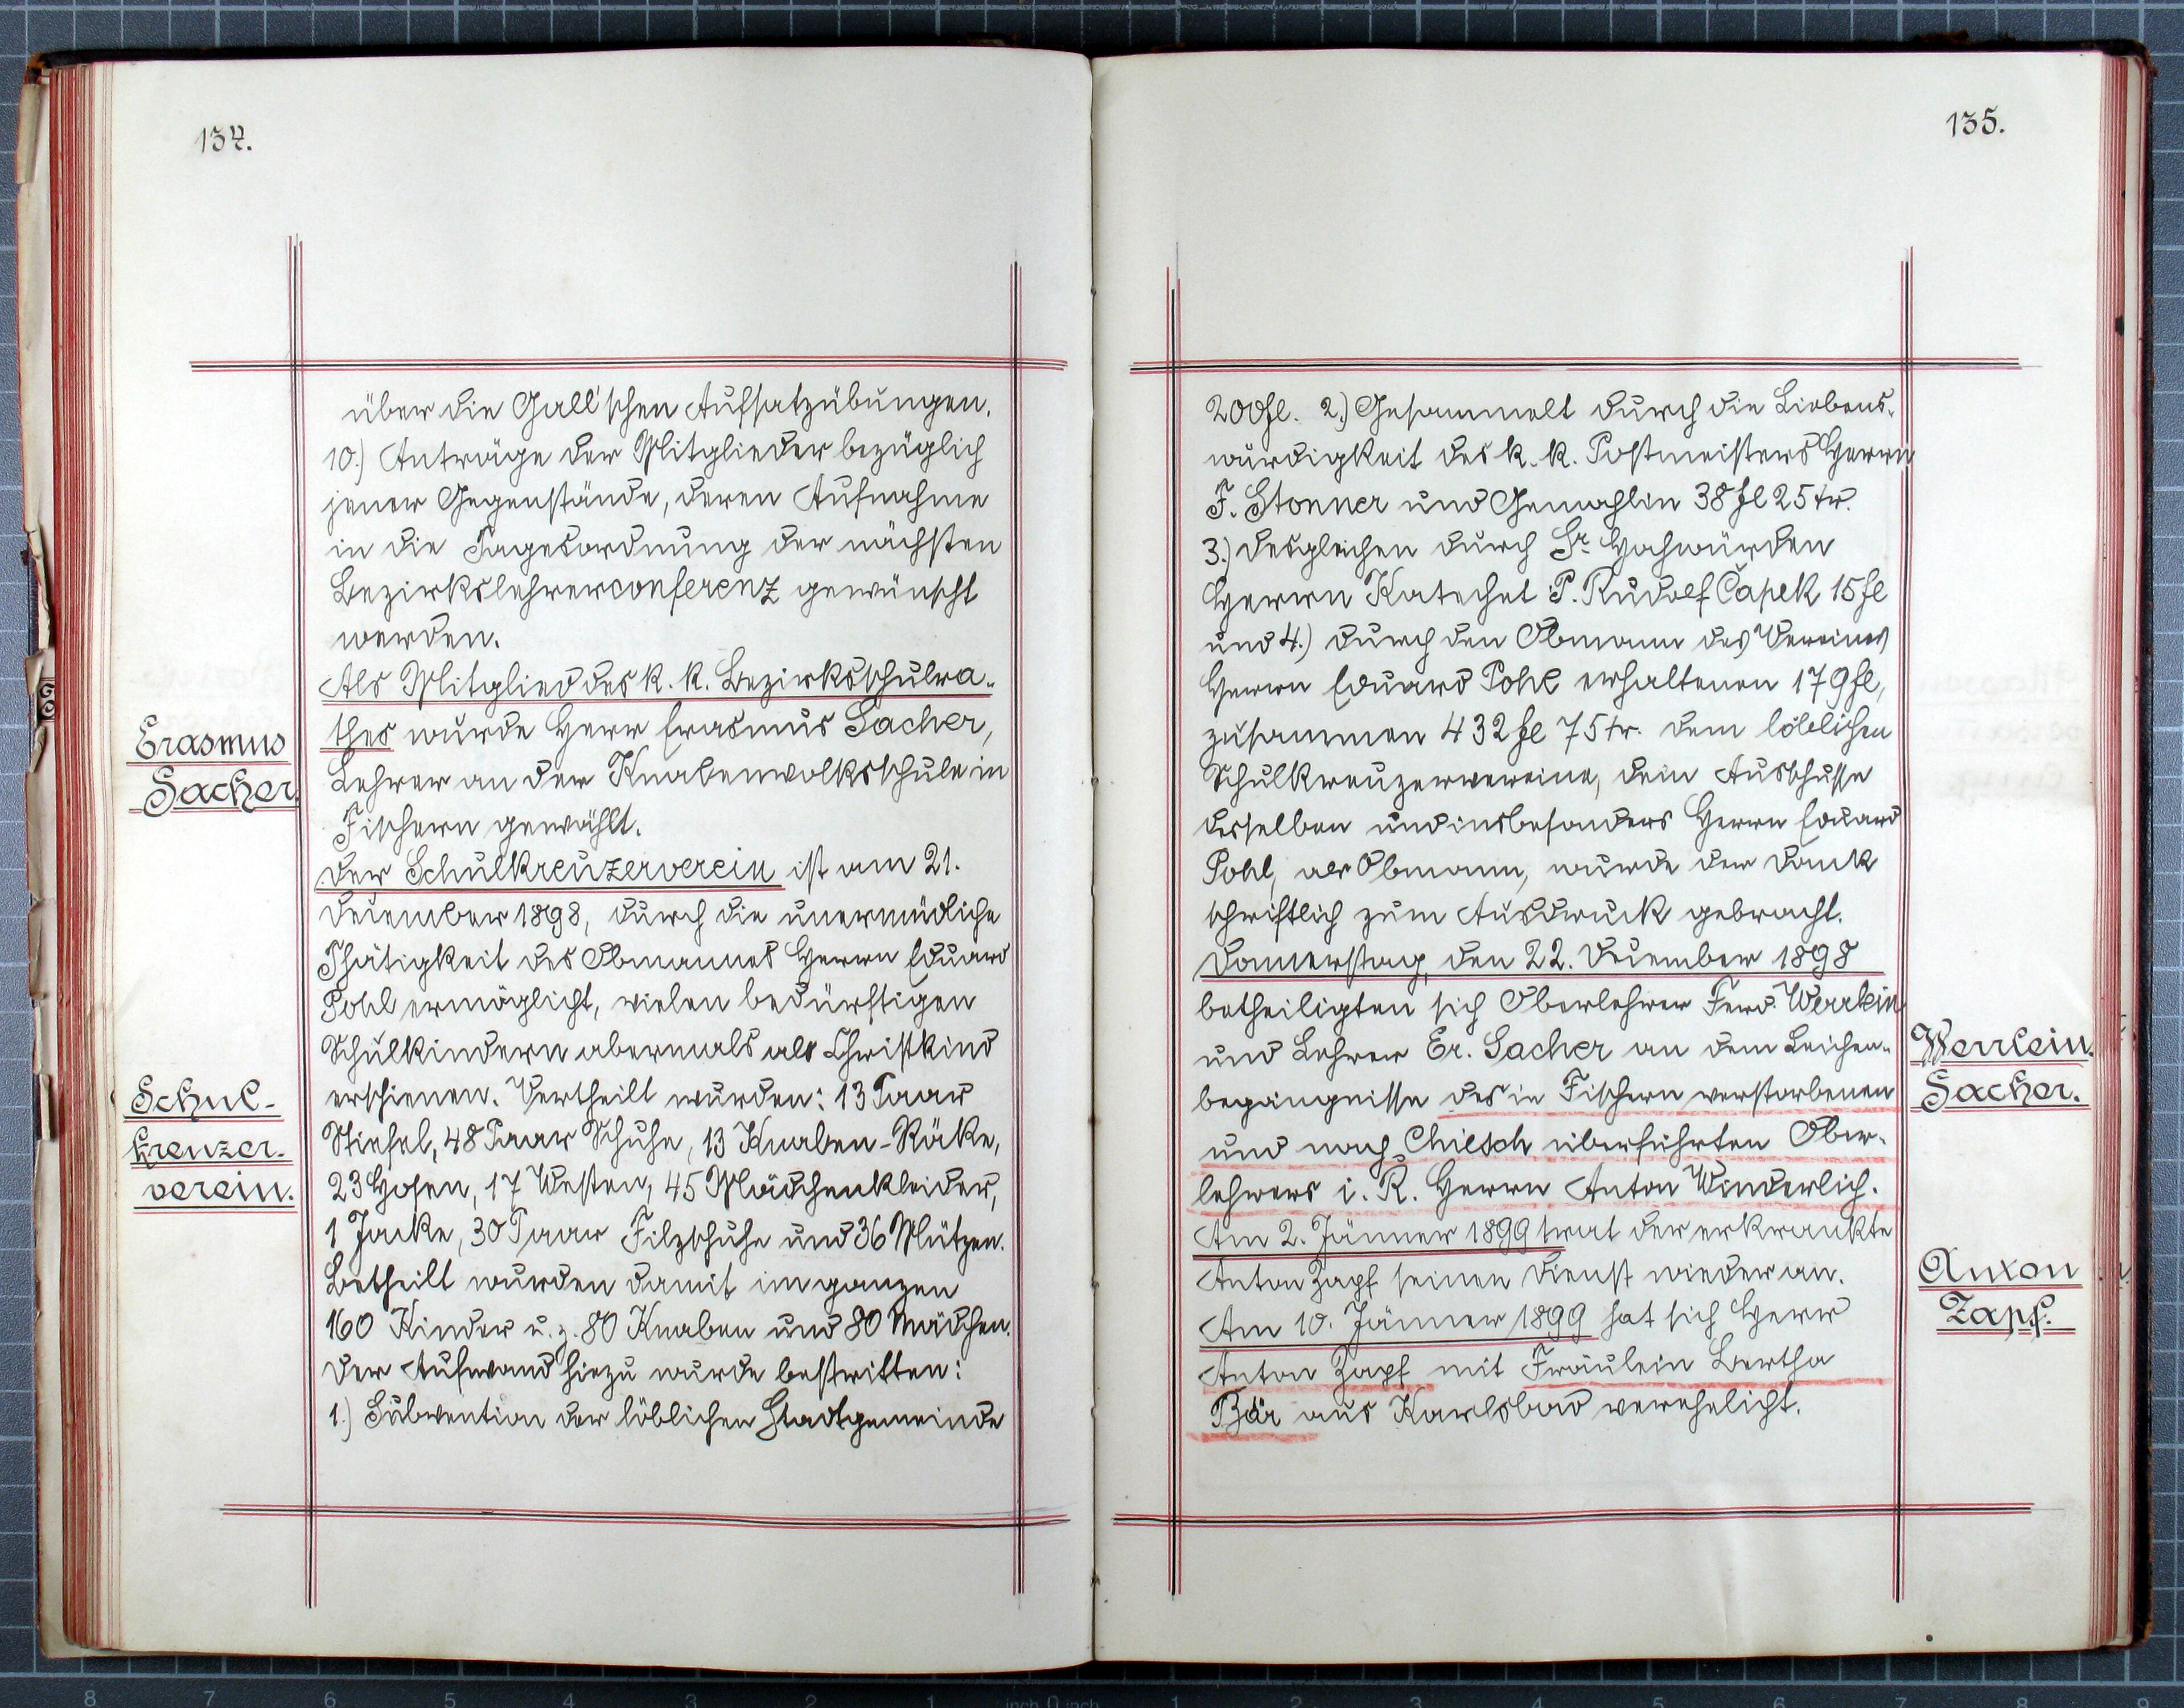 134.
über die Gall'schen Aufsatzübungen.
10.) Anträge der Mitglieder bezüglich
jener Gegenstände, deren Aufnahme
in die Tagesordnung der nächsten
Bezirkslehrerconferenz gewünscht
werden.
Als Mitglied des k. k. Bezirksschulra-
thes wurde Herr Erasmus Sacher,
Lehrer an der Knabenvolksschule in
Fischern gewählt.
Der Schulkreuzerverein ist am 21.
December 1898, durch die unermüdliche
Thätigkeit des Obmannes Herrn Eduard
Pohl ermöglicht, vielen bedürftigen
Schulkindern abermals als Christkind
erschienen. Vertheilt wurden: 13 Paar
Stiefel, 48 Paar Schuhe, 13 Knaben-Röcke,
23 Hosen, 17 Westen, 45 Mädchenkleider,
1 Jacke, 30 Paar Filzschuhe und 36 Mützen.
Betheilt wurden damit im ganzen
160 Kinder u. z. 80 Knaben und 80 Mädchen.
Der Aufwand hiezu wurde bestritten:
1.) Subvention der löblichen Stadtgemeinde
Erasmus
Sacher
Schul-
kreuzer-
verein.
135.
200 fl. 2.) Gesammelt durch die Liebens-
würdigkeit des k. k. Postmeisters Herrn
F. Stonner und Gemahlin 38 fl 25 kr.
3.) desgleichen durch Sr. Hochwürden
Herrn Katechet P. Rudolf Čapek 15 fl
und 4.) durch den Obmann des Vereines
Herrn Eduard Pohl erhaltenen 179 fl,
zusammen 432 fl 75 kr. Dem löblichen
Schulkreuzervereine, dem Ausschusse
desselben und insbesonders Herrn Eduard
Pohl, als Obmann, wurde der Dank
schriftlich zum Ausdruck gebracht.
Donnerstag, den 22. December 1898
betheiligten sich Oberlehrer Ferd. Werrlein
und Lehrer Er. Sacher an dem Leichen-
begängnisse des in Fischern verstorbenen
und nach Chiesch überführten Ober-
lehrers i. R. Herrn Anton Winderlich.
Am 2. Jänner 1899 trat der erkrankte
Anton Zapf seinen Dienst wieder an.
Am 10. Jänner 1899 hat sich Herr
Anton Zapf mit Fräulein Bertha
Bär aus Karlsbad verehelicht.
Werrlein.
Sacher.
Anton
Zapf.
8 7 6 5 4 3 2 1 inch 0 inch 1 2 3 4 5 6 7 8 9